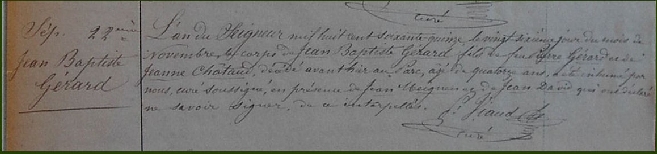 curé
Sép. 22ème
Jean Baptiste
Gérard
L'an du Seigneur mil huit cent soixante quinze le vingt sixième jour du mois de
Novembre le corps de Jean Baptiste Gérard, fils de feu Pierre Gérard et de
Jeanne Châtaud, décédé avant hier au Parc, âgé de quatorze ans, a été inhumé par
nous, curé soussigné, en présence de Jean Meignen et de Jean David qui ont déclaré
ne savoir signer, de ce interpellés.
curé